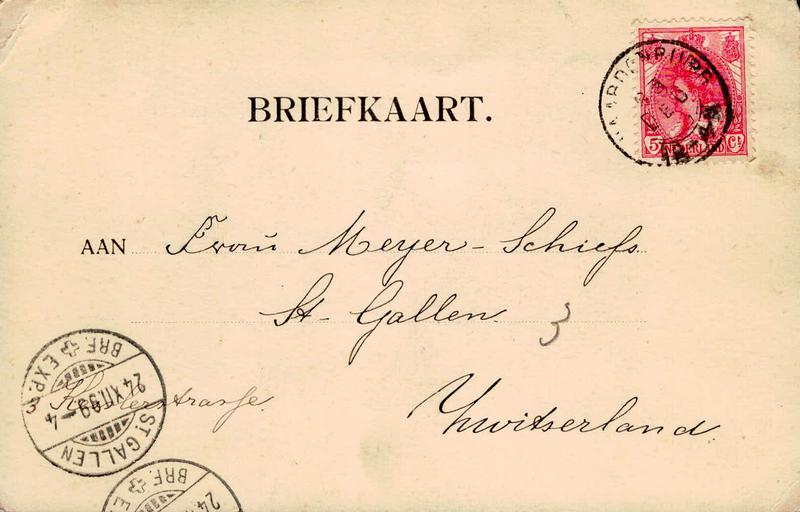 BRIEFKAART.
NEDERLAND
5 Ct
AAN Frau Meyer-Schiefs
St-Gallen. 3
3 strasse.
Zwitserland.
ST. GALLEN
24.XII.99-4
BRF. EXP.
BRF. E
24